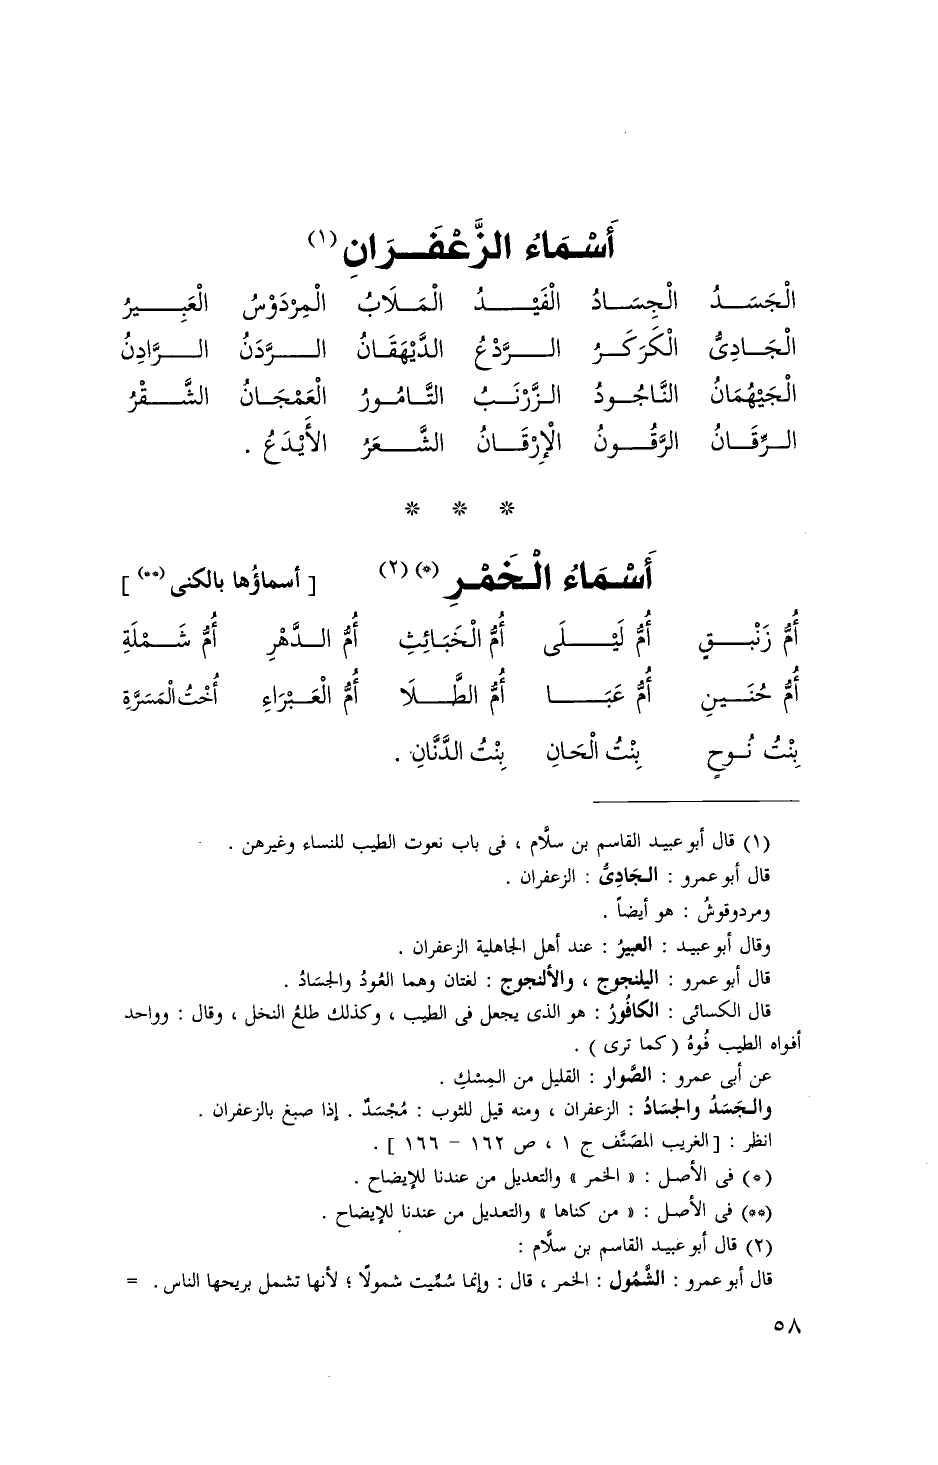 أَسْمَاءُ الزَّعْفَرَانِ (١)
الْجَسَدُ الْجِسَادُ الْفَيْدُ الْمَلَابُ الْمِرْدَوْسُ الْعَبِيرُ
الْجَادِىُّ الْكَرْكَرُ الرَّدْعُ الدَّيْهَقَانُ الرَّدَنُ الرَّادِنُ
الْجَيْهُمَانُ النَّاجُودُ الزَّرْنَبُ التَّامُورُ الْعَمْجَانُ الشَّقْرُ
الرِّقَانُ الرَّقُونُ الْإِرْقَانُ الشَّعَرُ الأَيْدَعُ .
* * *
أَسْمَاءُ الْخَمْرِ (*) (٢) [ أسماؤها بالكنى (**) ]
أُمُّ زَنْبَقٍ أُمُّ لَيْلَى أُمُّ الْخَبَائِثِ أُمُّ الدَّهْرِ أُمُّ شَمْلَةِ
أُمُّ حُنَينِ أُمُّ عَبَا أُمُّ الطَّلَا أُمُّ الْعَبْرَاءِ أُخْتُ الْمَسَرَّةِ
بِنْتُ نُوحٍ بِنْتُ الْحَانِ بِنْتُ الدَّنَّانِ .
(١) قال أبو عبيد القاسم بن سلَّام ، فى باب نعوت الطيب للنساء وغيرهن .
قال أبو عمرو : الجَادِىُّ : الزعفران .
ومردوقوشُ : هو أيضاً .
وقال أبو عبيد : العبيرُ : عند أهل الجاهلية الزعفران .
قال أبو عمرو : اليلنجوج ، والألنجوج : لغتان وهما العُودُ والجِسَادُ .
قال الكسائى : الكافُورُ : هو الذى يجعل فى الطيب ، وكذلك طلعُ النخل ، وقال : وواحد
أفواه الطيب فُوهُ ( كما ترى ) .
عن أبى عمرو : الصَّوار : القليل من المِسْكِ .
والجَسَدُ والجِسَادُ : الزعفران ، ومنه قيل للثوب : مُجْسَدٌ . إذا صبغ بالزعفران .
انظر : [ الغريب المصَنَّف ج ١ ، ص ١٦٢ – ١٦٦ ] .
(*) فى الأصل : « الخمر » والتعديل من عندنا للإيضاح .
(**) فى الأصل : « من كناها » والتعديل من عندنا للإيضاح .
(٢) قال أبو عبيد القاسم بن سلَّام :
قال أبو عمرو : الشَّمُول : الخمر ، قال : وإنما سُمِّيت شمولًا ؛ لأنها تشمل بريحها الناس . =
٥٨